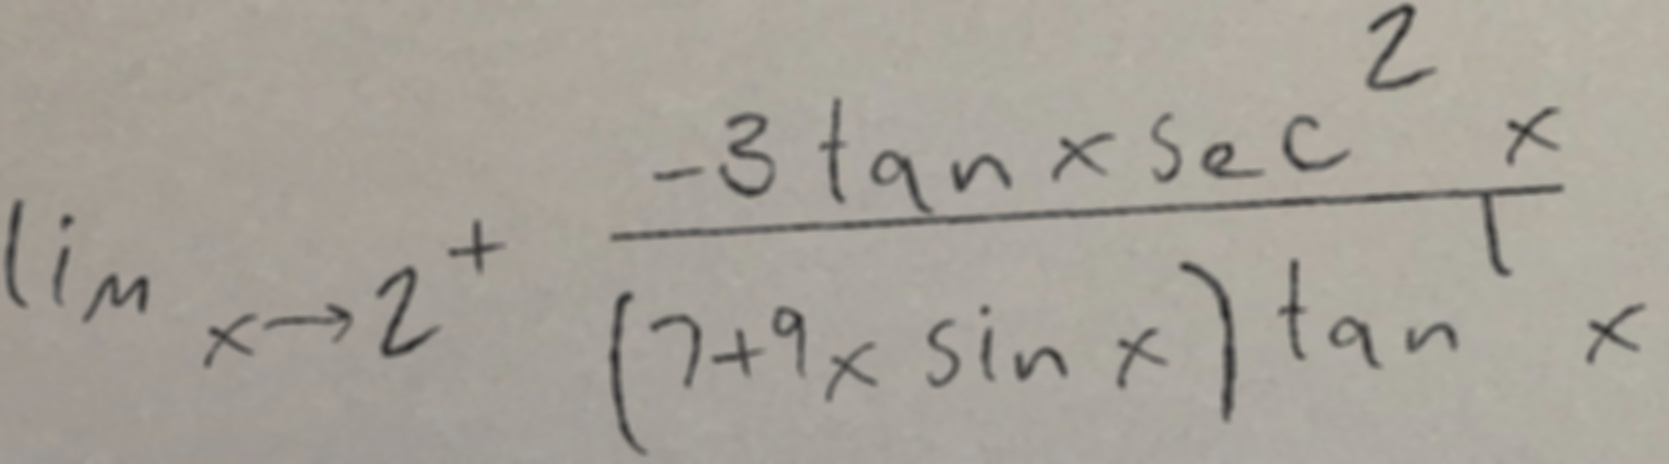 \lim_{x \to 2^+} \frac{-3 \tan x \sec^2 x}{(7+9x \sin x) \tan^1 x}